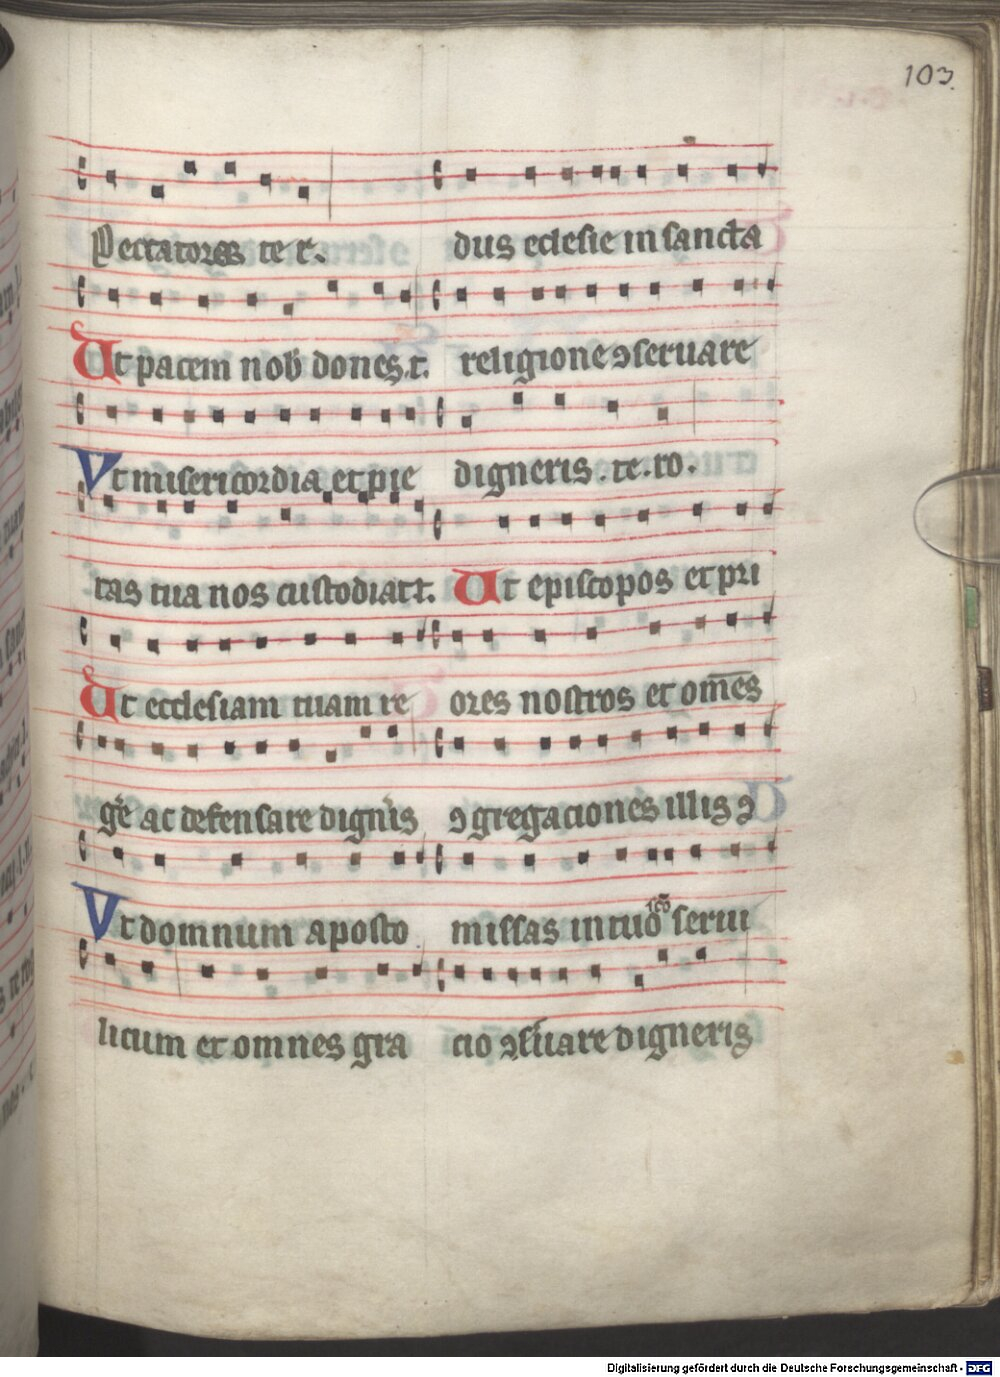 103.
Peccatores te r.
Ut pacem nob̄ dones.t.
Vt misericordia et pie
tas tua nos custodiat t.
Ut ecclesiam tuam re
ge̅ ac defensare dignis
Vt domnum aposto
licum et omnes gra
dus eclesie in sancta
religione ꝯseruare
digneris . te . ro .
Ut episcopos et pri
ores nostros et om̄es
ꝯgregaciones illis ꝯ
missas in tuo s̄co serui
cio ꝯs̄uare digneris
Digitalisierung gefördert durch die Deutsche Forschungsgemeinschaft - DFG